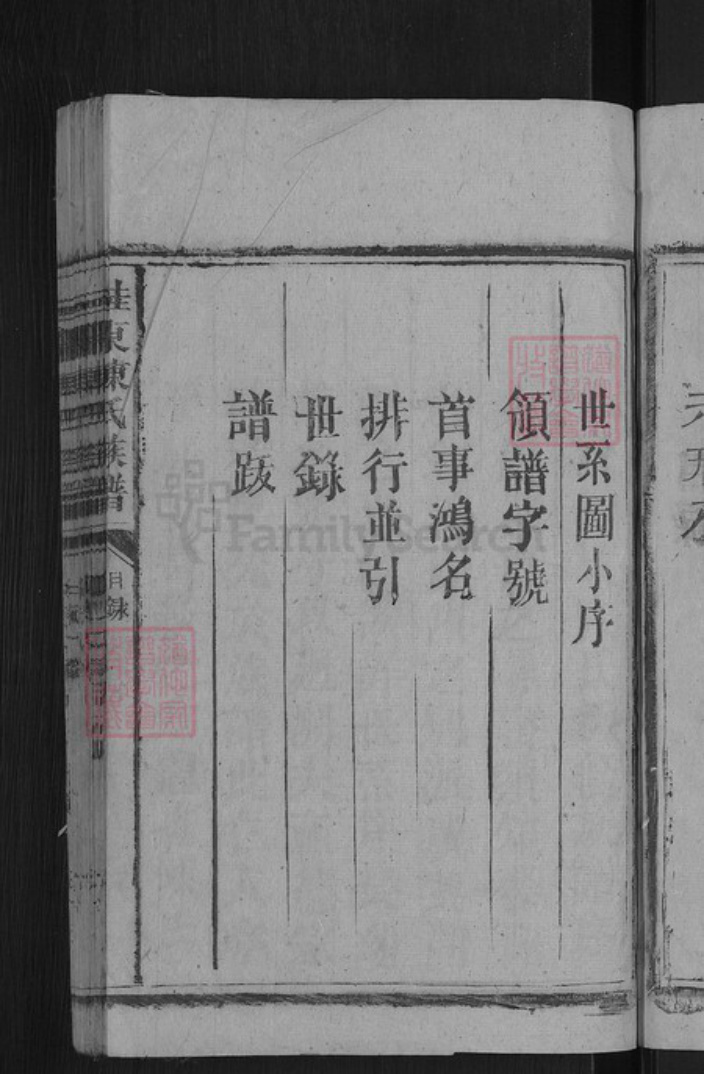 世系圖小序
領譜字號
首事鴻名
排行並引
世錄
譜跋
桂東陳氏族譜
目錄
FamilySearch